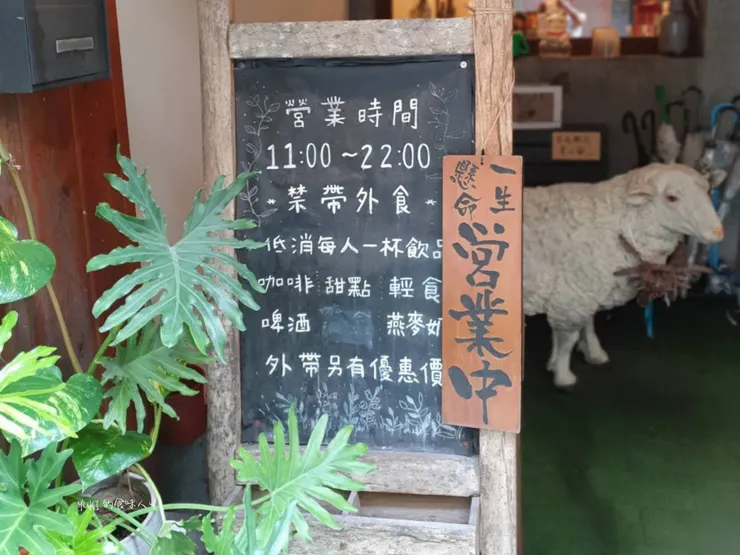 營業時間
11:00～22:00
*禁帶外食*
低消每人一杯飲品
咖啡 甜點 輕食
啤酒 燕麥奶
外帶另有優惠價
一生懸命
営業中